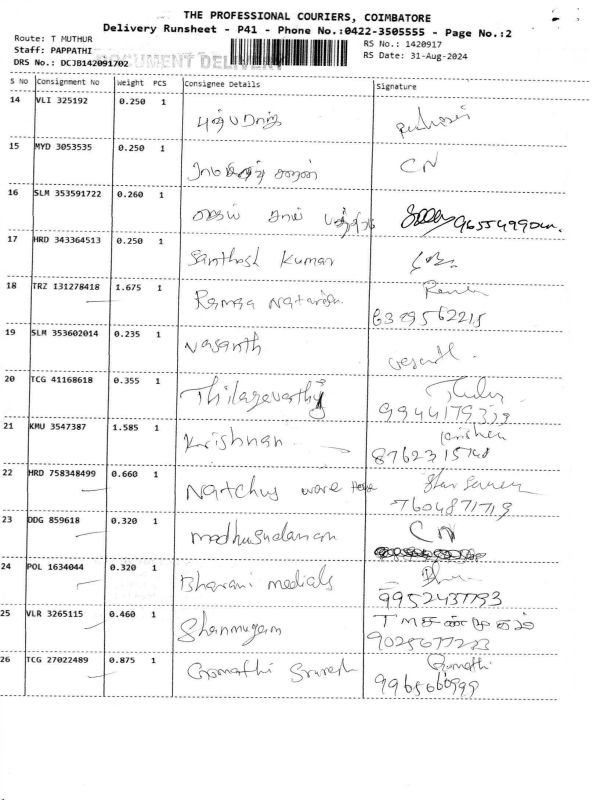 THE PROFESSIONAL COURIERS, COIMBATORE
Delivery Runsheet - P41 - Phone No.:0422-3505555 - Page No.:2
Route: T MUTHUR
RS No.: 1420917
Staff: PAPPATHI
RS Date: 31-Aug-2024
DOCUMENT DELIVERY
DRS No.: DCJB142091702
S No Consignment No Weight PCS Consignee Details Signature
14 VLI 325192 0.250 1 புஷ்பராஜ்
15 MYD 3053535 0.250 1 CN
16 SLM 353591722 0.260 1
17 HRD 343364513 0.250 1 Santhosh Kumar
18 TRZ 131278418 1.675 1 Ramya Natarajan
6379562215
19 SLM 353602014 0.235 1 Vasanth vasanth
20 TCG 41168618 0.355 1 Thilagavathy
9944179339
21 KMU 3547387 1.585 1 Krishnan Krishnan
8762315748
22 HRD 758348499 0.660 1 Natchus ware
7604871719
23 DDG 859618 0.320 1 Madhusudanan CN
24 POL 1634044 0.320 1 Bhavani medicals
9952437793
25 VLR 3265115 0.460 1 Shanmugam TM சண்முகம்
9025677223
26 TCG 27022489 0.875 1 Gomathi Suresh Gomathi
9965666999